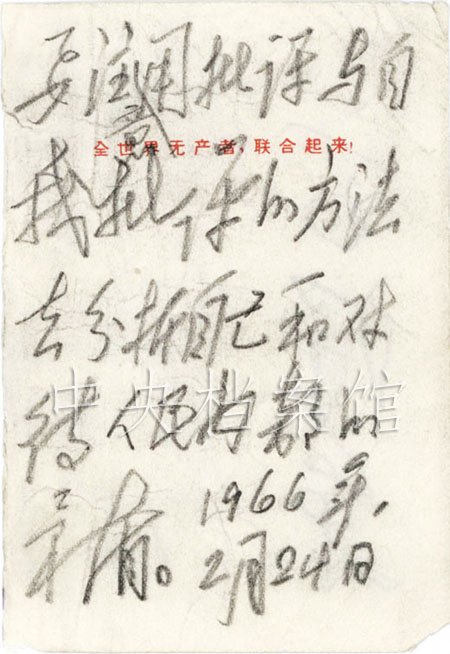 要注意用批评与自
全世界无产者，联合起来!
我批评的方法
去分析自己和对
待人民内部的
中央档案馆
矛盾。1966年，
2月24日